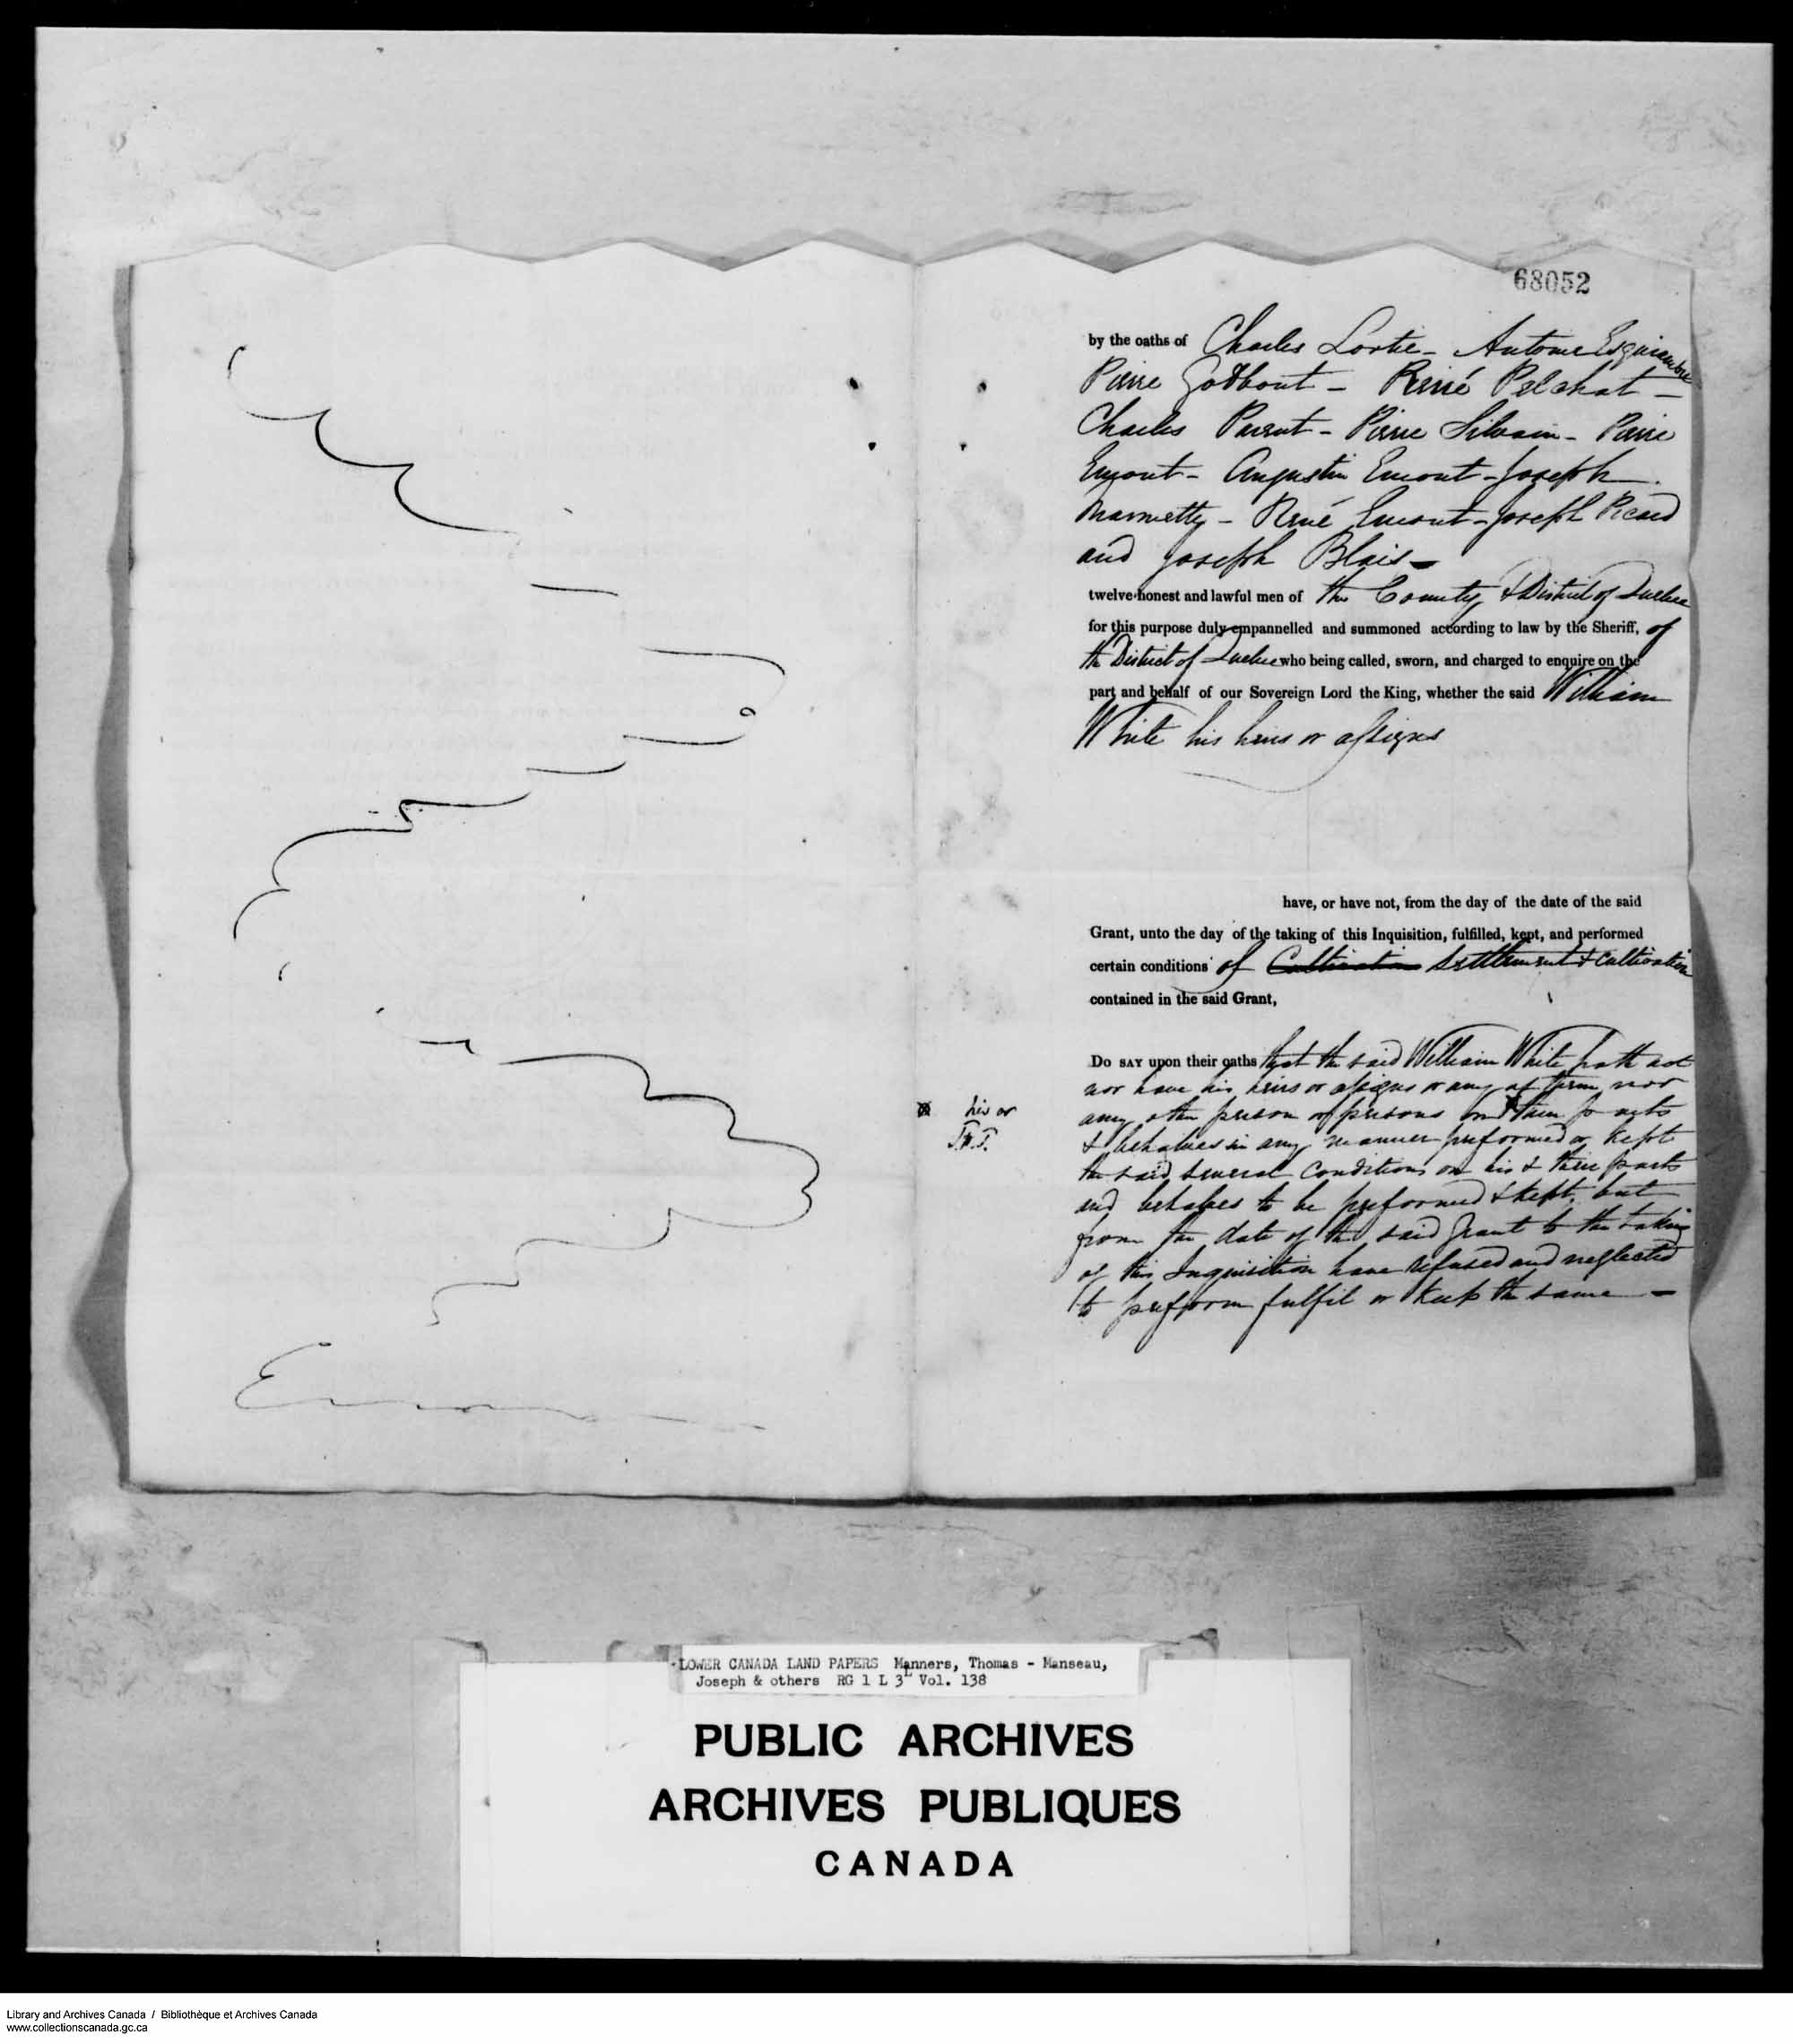 68052
by the oaths of Charles Lortie - Antoine Esquiambre
Pierre Godbout - René Pelchat -
Charles Parent - Pierre Silvain - Pierre
Emont - Augustin Emont - Joseph
Marmette - René Emont - Joseph Picard
and Joseph Blais -
twelve honest and lawful men of the County & District of Quebec
for this purpose duly empannelled and summoned according to law by the Sheriff, of
the District of Quebec who being called, sworn, and charged to enquire on the
part and behalf of our Sovereign Lord the King, whether the said William
White his heirs or assigns
have, or have not, from the day of the date of the said
Grant, unto the day of the taking of this Inquisition, fulfilled, kept, and performed
certain conditions of Cultivation Settlement & Cultivation
contained in the said Grant,
Do say upon their oaths that the said William White hath not
nor have his heirs or assigns or any of them nor
any other person or persons on their parts
his or
& behalves in any manner performed or kept
the said several Conditions on his & their parts
and behalves to be performed & kept, but
from the date of the said Grant to the taking
of this Inquisition have refused and neglected
to perform fulfil or keep the same -
LOWER CANADA LAND PAPERS Manners, Thomas - Manseau,
Joseph & others RG 1 L 3L Vol. 138
PUBLIC ARCHIVES
ARCHIVES PUBLIQUES
CANADA
Library and Archives Canada / Bibliothèque et Archives Canada
www.collectionscanada.gc.ca